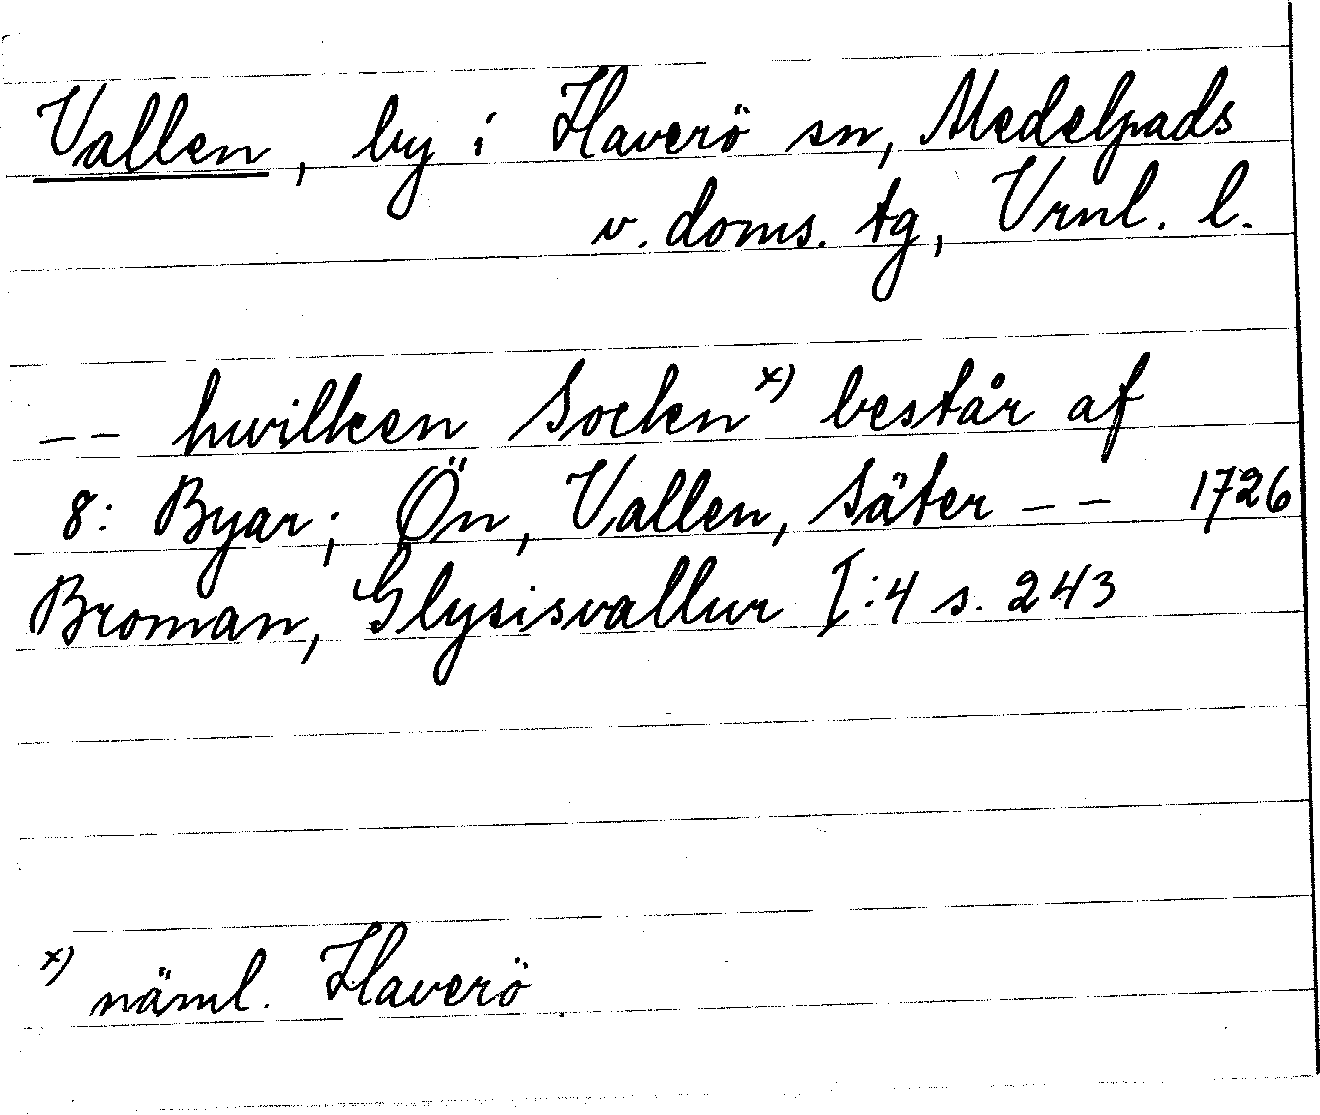 Vallen, by i Haverö sn, Medelpads
v. doms. tg, Vrnl. l.
-- hwilken Socken x) består af
8: Byar; Ön, Vallen, Säter -- 1726
Broman, Glysisvallur I:4 s. 243
x) näml. Haverö.